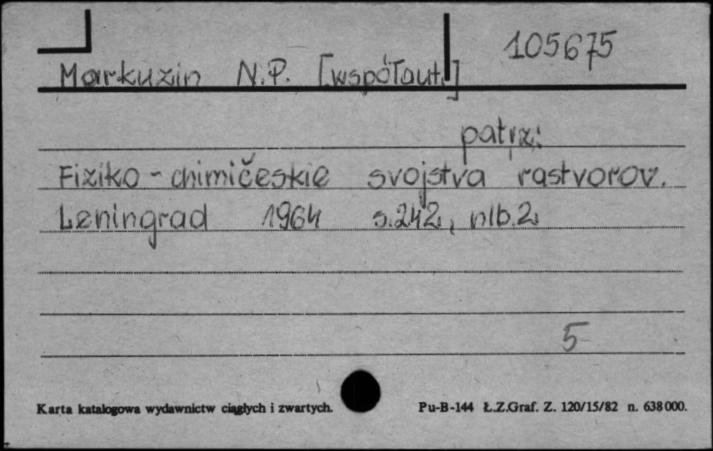 105675
Markuzin N.P. [współaut.]
patrz:
Fiziko-chimičeskie svojstva rastvorov.
Leningrad 1964 s.242, nlb.2
5
Karta katalogowa wydawnictw ciągłych i zwartych. Pu-B-144 Ł.Z.Graf. Z. 120/15/82 n. 638000.